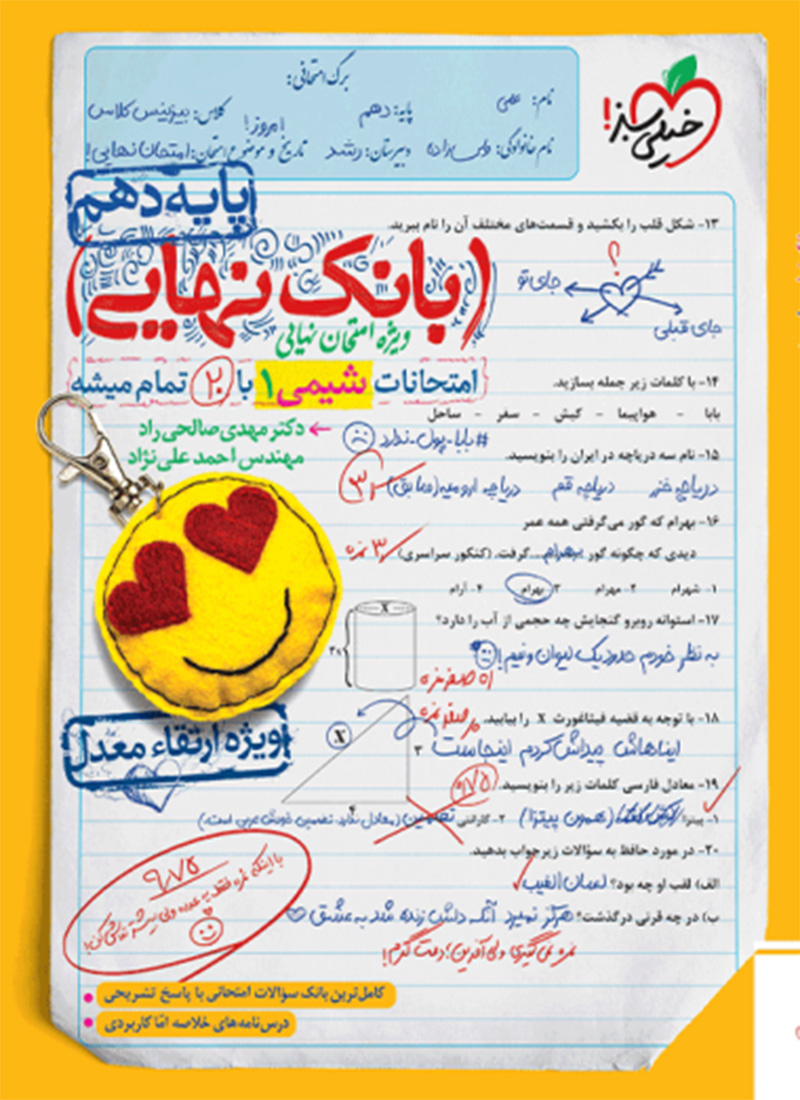 خیلی سبز!
برگ امتحانی:
نام: علی
پایه: دهم
کلاس: بیزینس کلاس
نام خانوادگی:
دبیرستان: رشد
تاریخ و موضوع امتحان: امروز! امتحان نهایی!
پایه دهم
(بانک نهایی)
ویژه امتحان نهایی
امتحانات شیمی ۱ با ۲۰ تمام میشه
دکتر مهدی صالحی راد
مهندس احمد علی‌نژاد
۱۳- شکل قلب را بکشید و قسمت‌های مختلف آن را نام ببرید.
؟
جای تو
جای قبلی
۱۴- با کلمات زیر جمله بسازید.
بابا - هواپیما - کیش - سفر - ساحل
#بابا-پول-ندارد
۱۵- نام سه دریاچه در ایران را بنویسید.
دریاچه خزر دریاچه قم دریاچه ارومیه (سابق)
۱۶- بهرام که گور می‌گرفتی همه عمر
دیدی که چگونه گور بهرام گرفت. (کنکور سراسری) ۳ نمره
۱- شهرام ۲- مهرام ۳- بهرام ۴- آرام
۱۷- استوانه روبرو گنجایش چه حجمی از آب را دارد؟
X
به نظر خودم حدود یک لیوان و نیم!
۱۸- با توجه به قضیه فیثاغورث X را بیابید.
ایناهاش پیداش کردم اینجاست
X
۳
۴
۱۹- معادل فارسی کلمات زیر را بنویسید.
۱- پیتزا: (همون پیتزا) ۲- گارانتی: تضمین (معادل ندارد تضمین خودش عربی است.)
۲۰- در مورد حافظ به سؤالات زیر جواب بدهید.
الف) لقب او چه بود؟ لسان الغیب
ب) در چه قرنی درگذشت؟ هرگز نمیرد آنکه دلش زنده شد به عشق
نمره نمی‌گیری ولی آفرین! دمت گرم!
۹/۷۵
ویژه ارتقاء معدل
کامل‌ترین بانک سوالات امتحانی با پاسخ تشریحی
درس‌نامه‌های خلاصه اما کاربردی